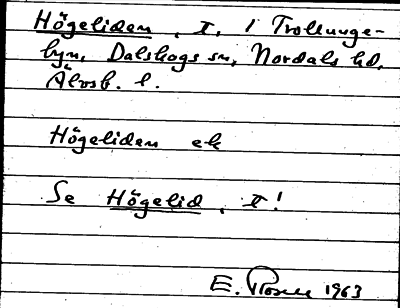 Högeliden, T, i Trollunge-
byn, Dalskogs sn, Nordals hd,
Älvsb. l.
Högeliden ek
Se Högelid, T!
E. Rosell 1963